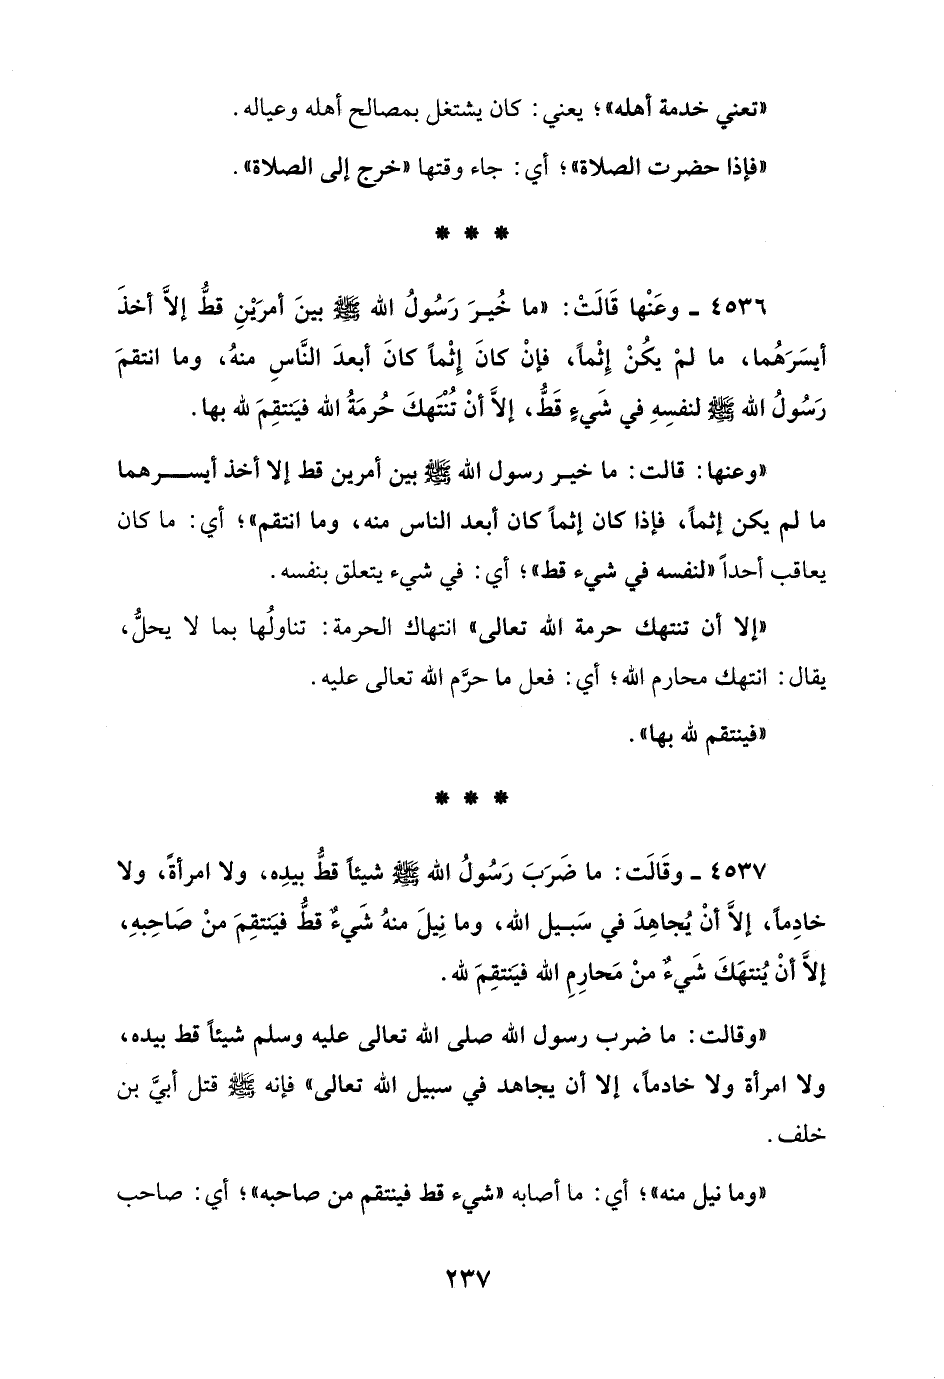 «تعني خدمة أهله»؛ يعني: كان يشتغل بمصالح أهله وعياله.
«فإذا حضرت الصلاة»؛ أي: جاء وقتها «خرج إلى الصلاة».
* * *
٤٥٣٦ ـ وعَنْها قَالَتْ: «ما خُيـرَ رَسُولُ الله ﷺ بينَ أمرَيْنِ قطُّ إلاَّ أخذَ
أيسَرَهُما، ما لمْ يكُنْ إثْماً، فإنْ كانَ إثْماً كانَ أبعدَ النَّاسِ منهُ، وما انتقمَ
رَسُولُ الله ﷺ لنفسِهِ في شَيءٍ قَطُّ، إلاَّ أنْ تُنْتَهكَ حُرمَةُ الله فيَنتقِمَ لله بها.
«وعنها: قالت: ما خيـر رسول الله ﷺ بين أمرين قط إلا أخذ أيســرهما
ما لم يكن إثماً، فإذا كان إثماً كان أبعد الناس منه، وما انتقم»؛ أي: ما كان
يعاقب أحداً «لنفسه في شيء قط»؛ أي: في شيء يتعلق بنفسه.
«إلا أن تنتهك حرمة الله تعالى» انتهاك الحرمة: تناولُها بما لا يحلُّ،
يقال: انتهك محارم الله؛ أي: فعل ما حرَّم الله تعالى عليه.
«فينتقم لله بها».
* * *
٤٥٣٧ ـ وقَالَت: ما ضَرَبَ رَسُولُ الله ﷺ شيئاً قطُّ بيدِه، ولا امرأةً، ولا
خادِماً، إلاَّ أنْ يُجاهِدَ في سَبـيل الله، وما نِيلَ منهُ شَيءٌ قطُّ فيَنتقِمَ منْ صَاحِبهِ،
إلاَّ أنْ يُنتهَكَ شَيءٌ منْ مَحارِمِ الله فيَنتقِمَ لله.
«وقالت: ما ضرب رسول الله صلى الله تعالى عليه وسلم شيئاً قط بيده،
ولا امرأة ولا خادماً، إلا أن يجاهد في سبيل الله تعالى» فإنه ﷺ قتل أبيَّ بن
خلف.
«وما نيل منه»؛ أي: ما أصابه «شيء قط فينتقم من صاحبه»؛ أي: صاحب
٢٣٧